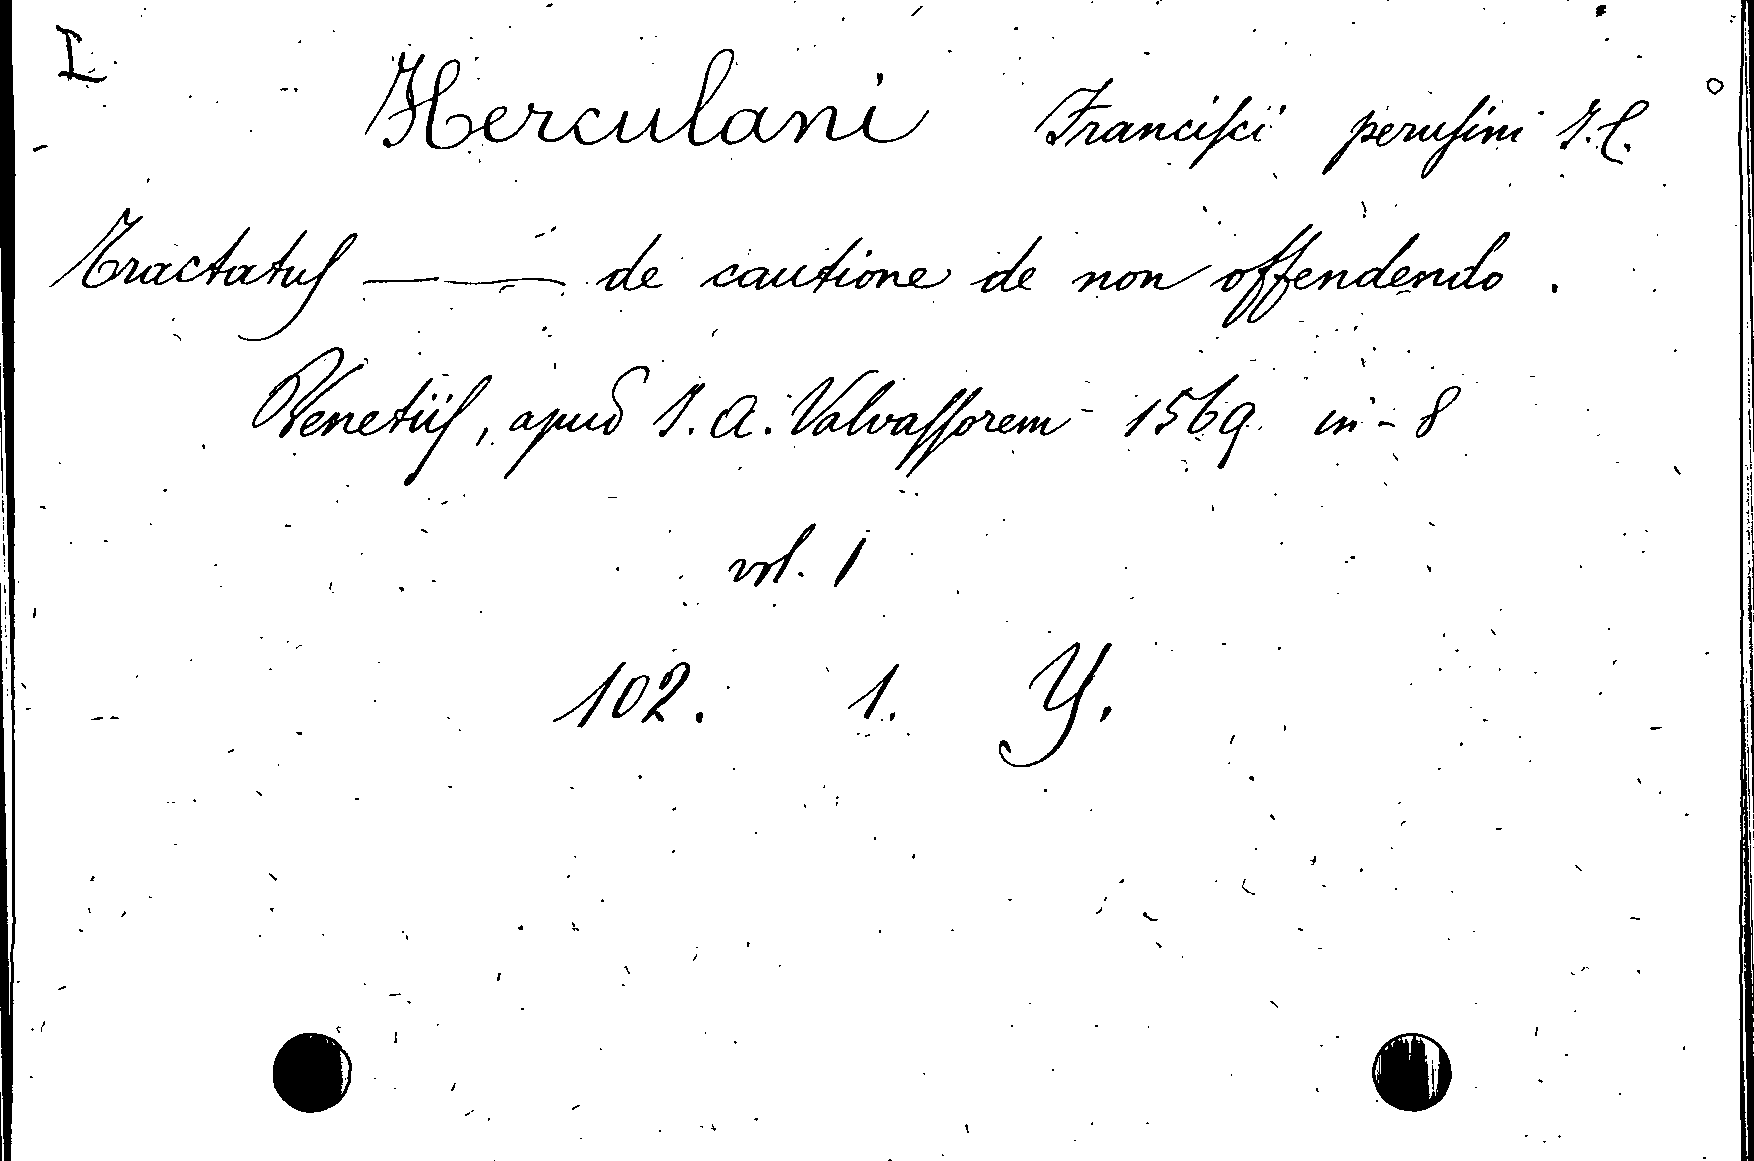 I
Herculani Francisci perusini I. C.
Tractatus —— de cautione de non offendendo.
Venetiis, apud I. A. Valvassorem 1569 in-8
vol. 1
102. 1. Y.